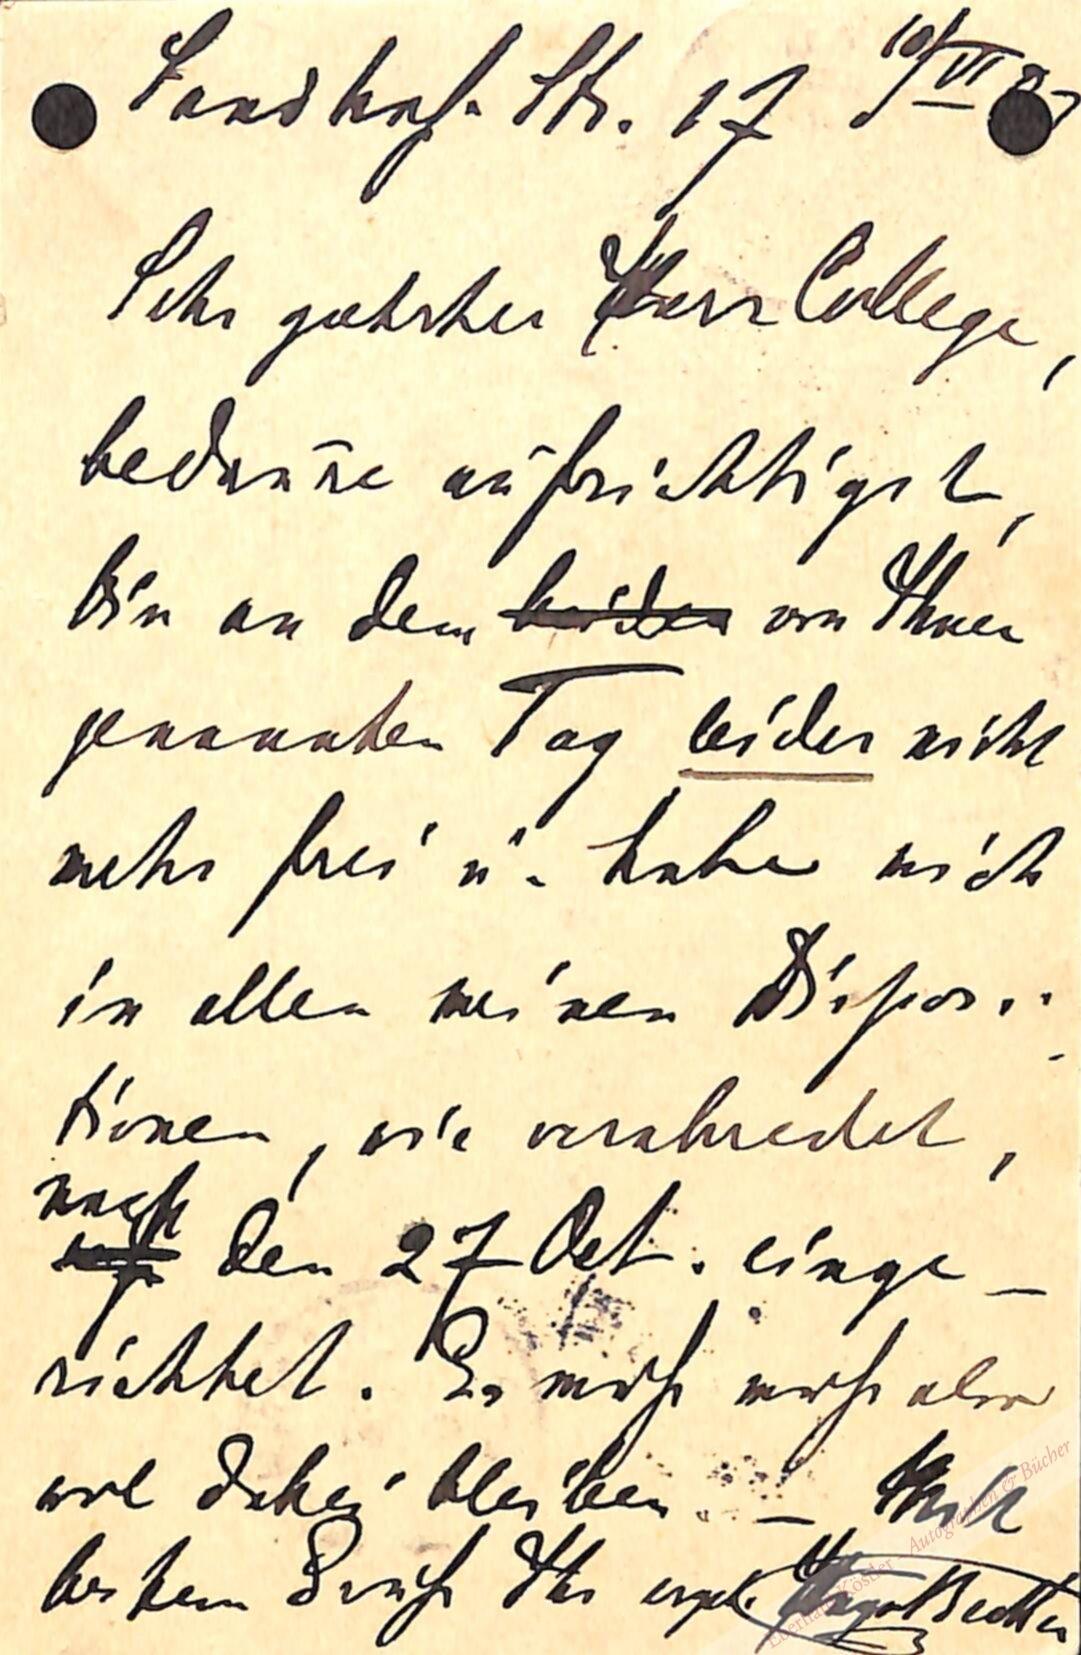 Landhaus-Str. 17 10/VI 87
Sehr geehrter Herr College,
bedaure aufrichtigst,
bin an dem beiden von Ihnen
genannten Tag leider nicht
mehr frei u. habe mich
in allen meinen Disposi-
tionen, wie verabredet,
nach
den 27 Oct. einge-
richtet. Es muß aber
wol dabei bleiben. – Mit
bestem Gruß Ihr ergeb.
Eberhard Köstler – Autographen & Bücher